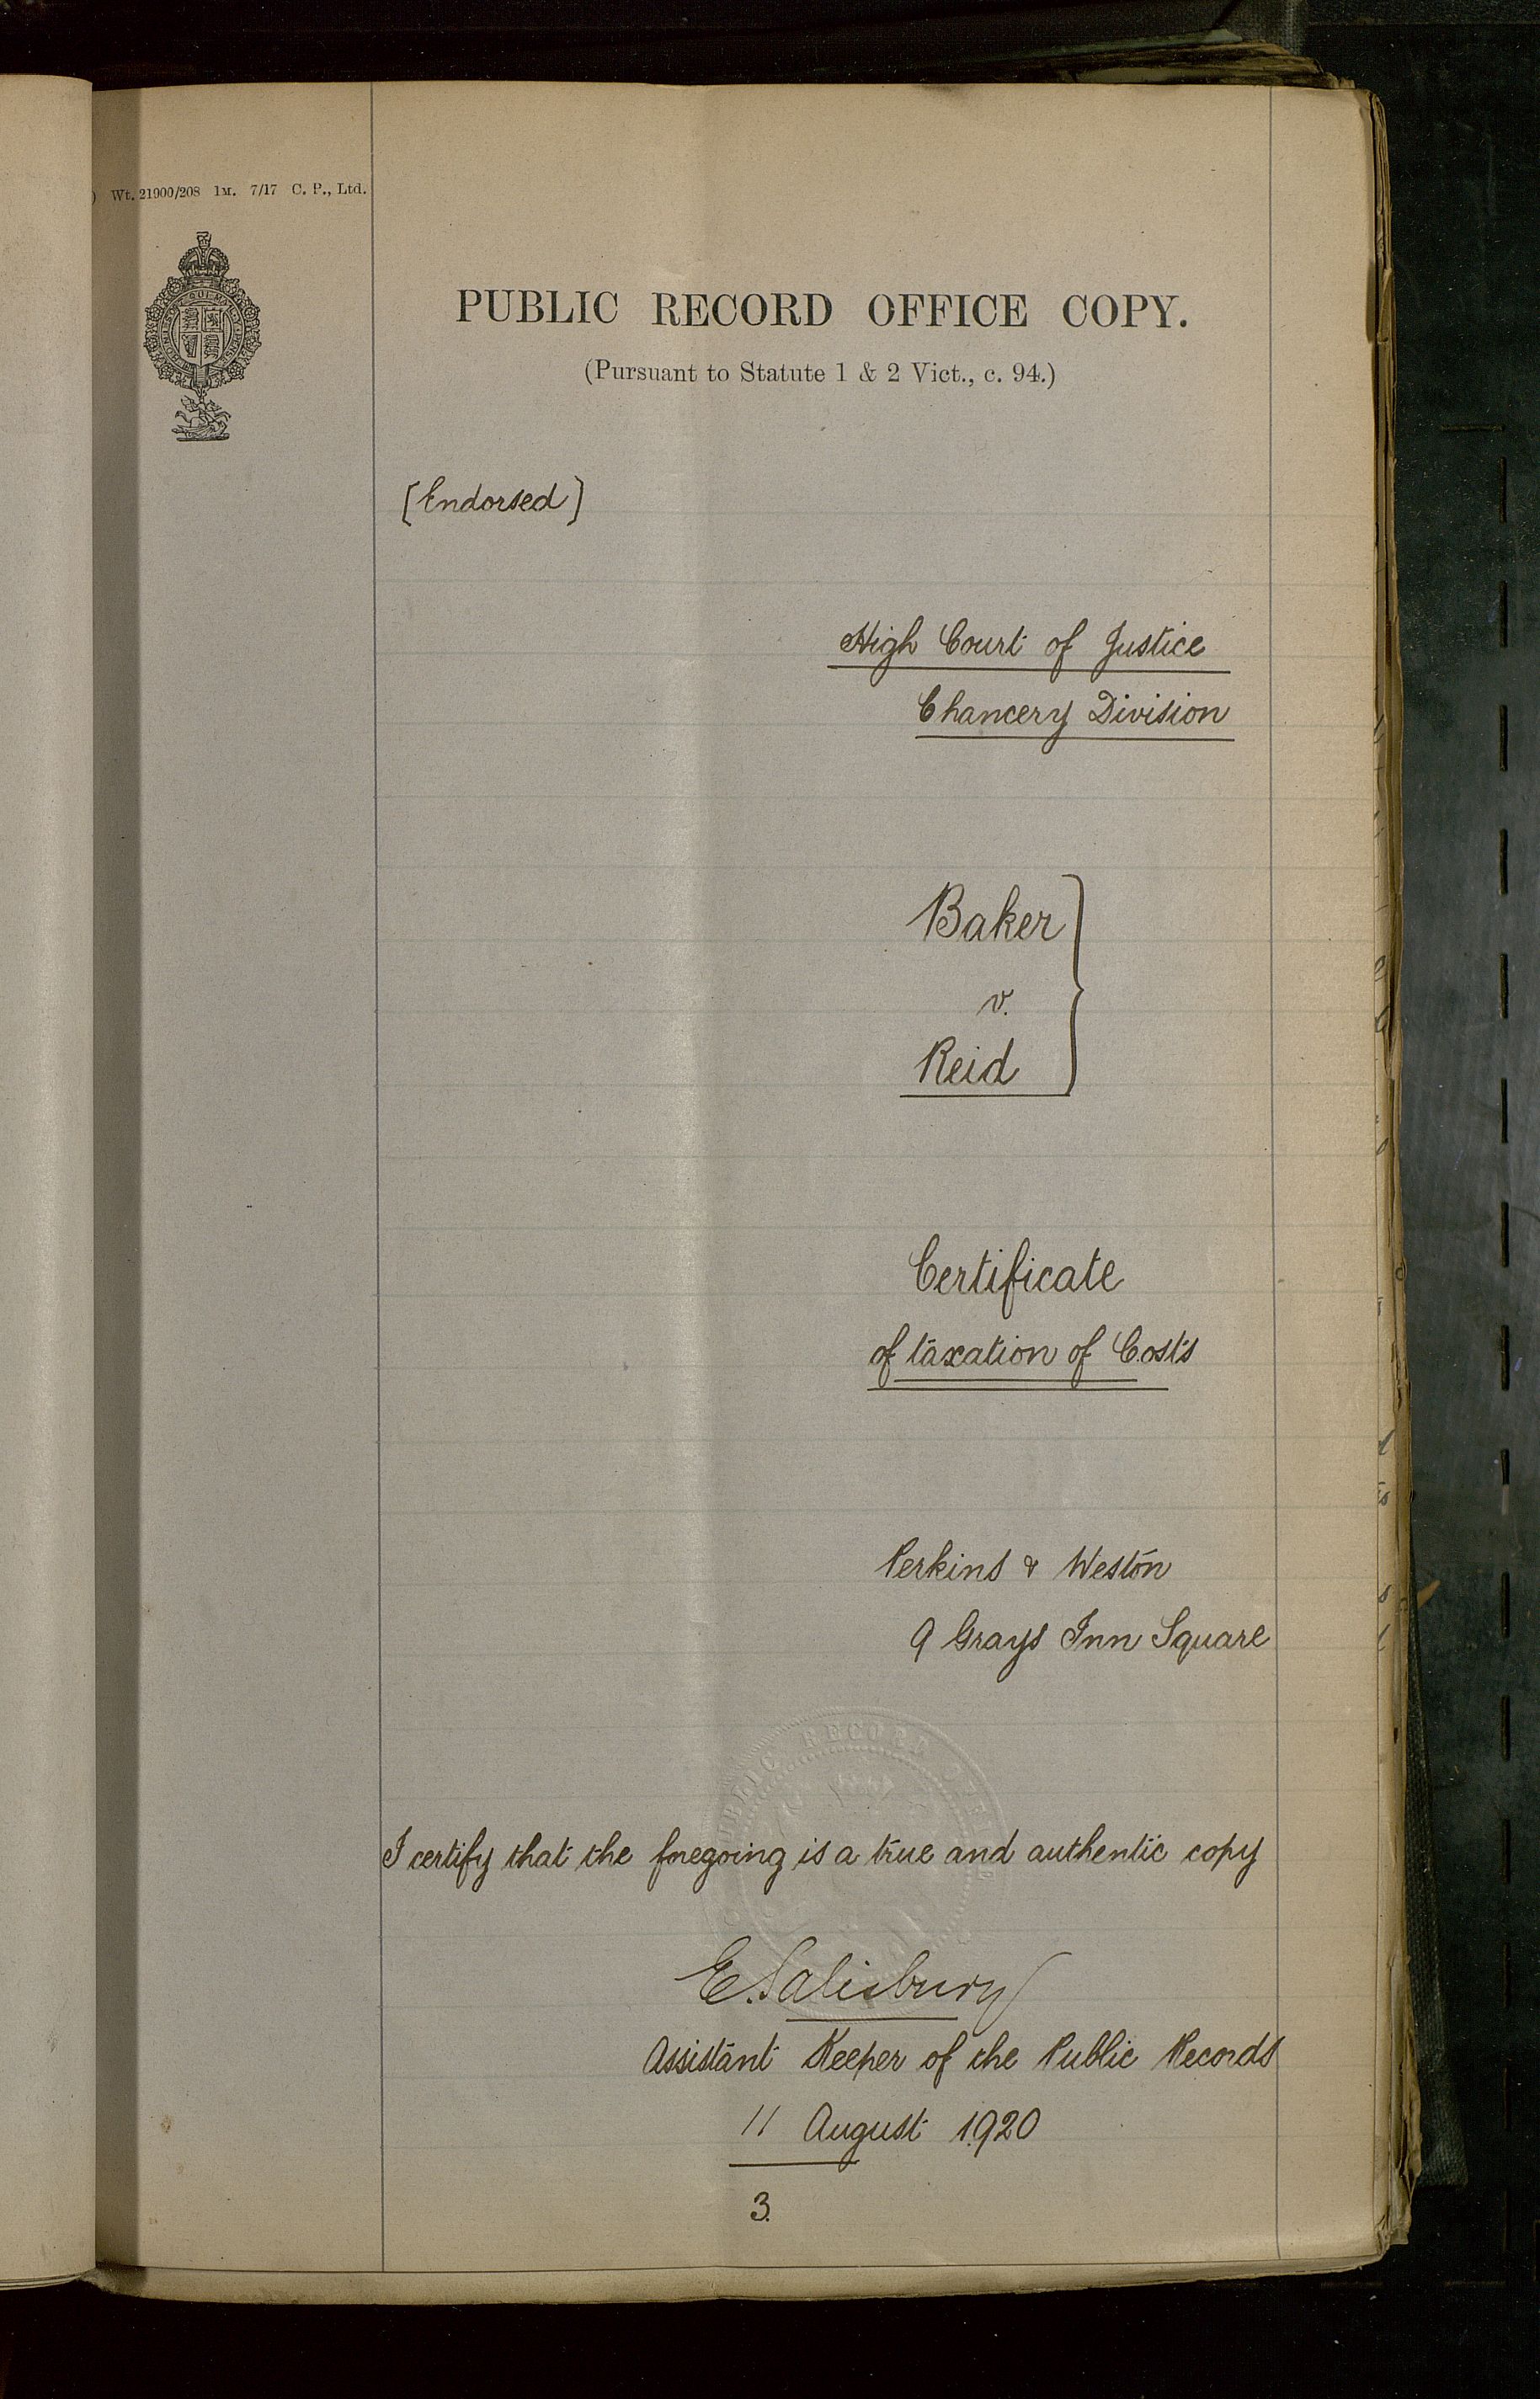 ) Wt. 21900/208 1M. 7/17 C. P., Ltd.
PUBLIC RECORD OFFICE COPY.
(Pursuant to Statute 1 & 2 Vict., c. 94.)
[Endorsed]
High Court of Justice
Chancery Division
Baker
v.
Reid
Certificate
of taxation of Costs
Perkins & Weston
9 Grays Inn Square
PUBLIC RECORD
I certify that the foregoing is a true and authentic copy
E. Salisbury
Assistant Keeper of the Public Records
11 August 1920
3.